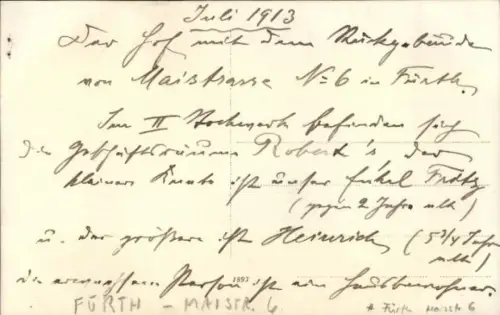 Juli 1913
Der Hof mit dem Rückgebäude
von Maistrasse No 6 in Fürth.
Im II Stockwerk befinden sich
die Geschäftsräume Robert's der
kleinere Knabe ist unser Enkel Fritz
(gegen 2 Jahre alt)
u. der größere ist Heinrich (5 3/4 Jahre
alt)
die erwachsene Person ist ein Hausbewohner.
1897
FÜRTH - MAISTR. 6.
Fürth Maistr 6